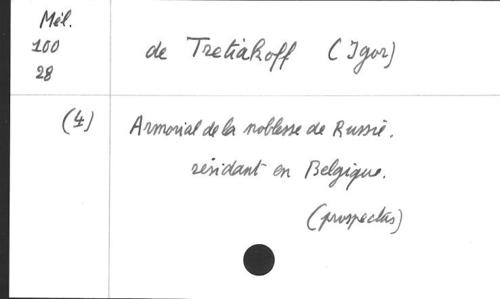 Mél.
100
28
de Tretiakoff (Igor)
(4) Armorial de la noblesse de Russie.
résidant en Belgique.
(prospectus)